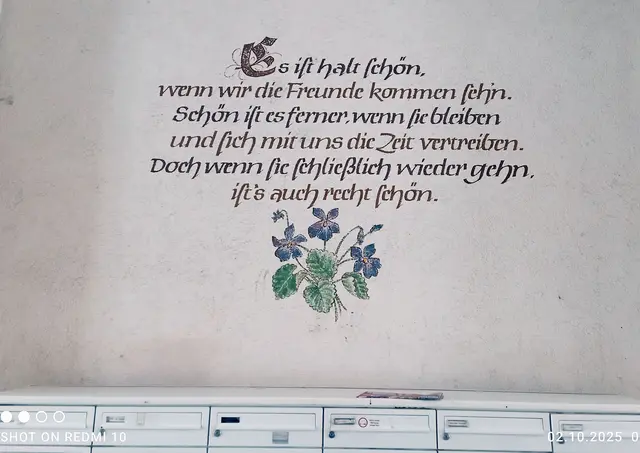 Es ist halt schön,
wenn wir die Freunde kommen sehn.
Schön ist es ferner, wenn sie bleiben
und sich mit uns die Zeit vertreiben.
Doch wenn sie schließlich wieder gehn,
ist's auch recht schön.
SHOT ON REDMI 10
02.10.2025